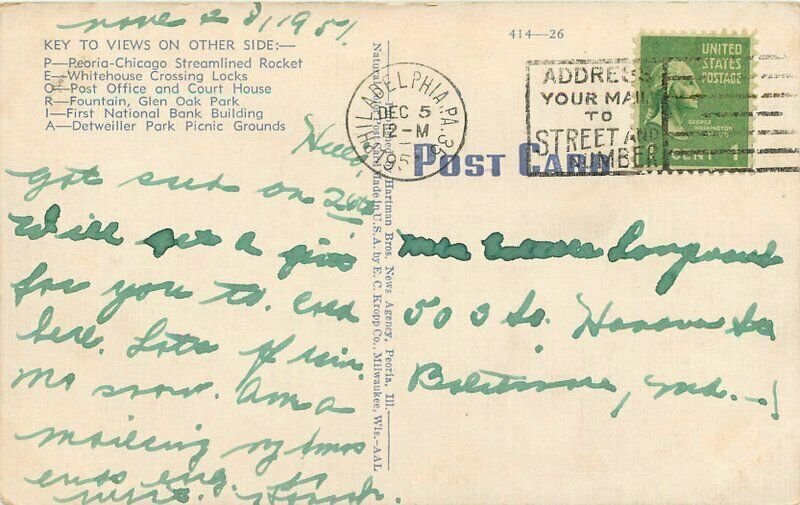 Nove 28, 1951.
KEY TO VIEWS ON OTHER SIDE:—
P—Peoria-Chicago Streamlined Rocket
E—Whitehouse Crossing Locks
O—Post Office and Court House
R—Fountain, Glen Oak Park
I—First National Bank Building
A—Detweiller Park Picnic Grounds
Hello,
got on 26th
Will get a
for you to. Cold
here. Lots of
no snow. Am
mailing my Xmas

Published by Hartman Bros. News Agency, Peoria, Ill.
Natural Color Post Card Made in U.S.A. by E. C. Kropp Co., Milwaukee, Wis.—AAL
414—26
PHILADELPHIA, PA.
DEC 5
12-M
1951
ADDRESS
YOUR MAIL
TO
STREET AND
NUMBER
UNITED
STATES
POSTAGE
GEORGE
WASHINGTON
CENT 1
POST CARD
Mrs
503 So. Hanover
Baltimore, Md.